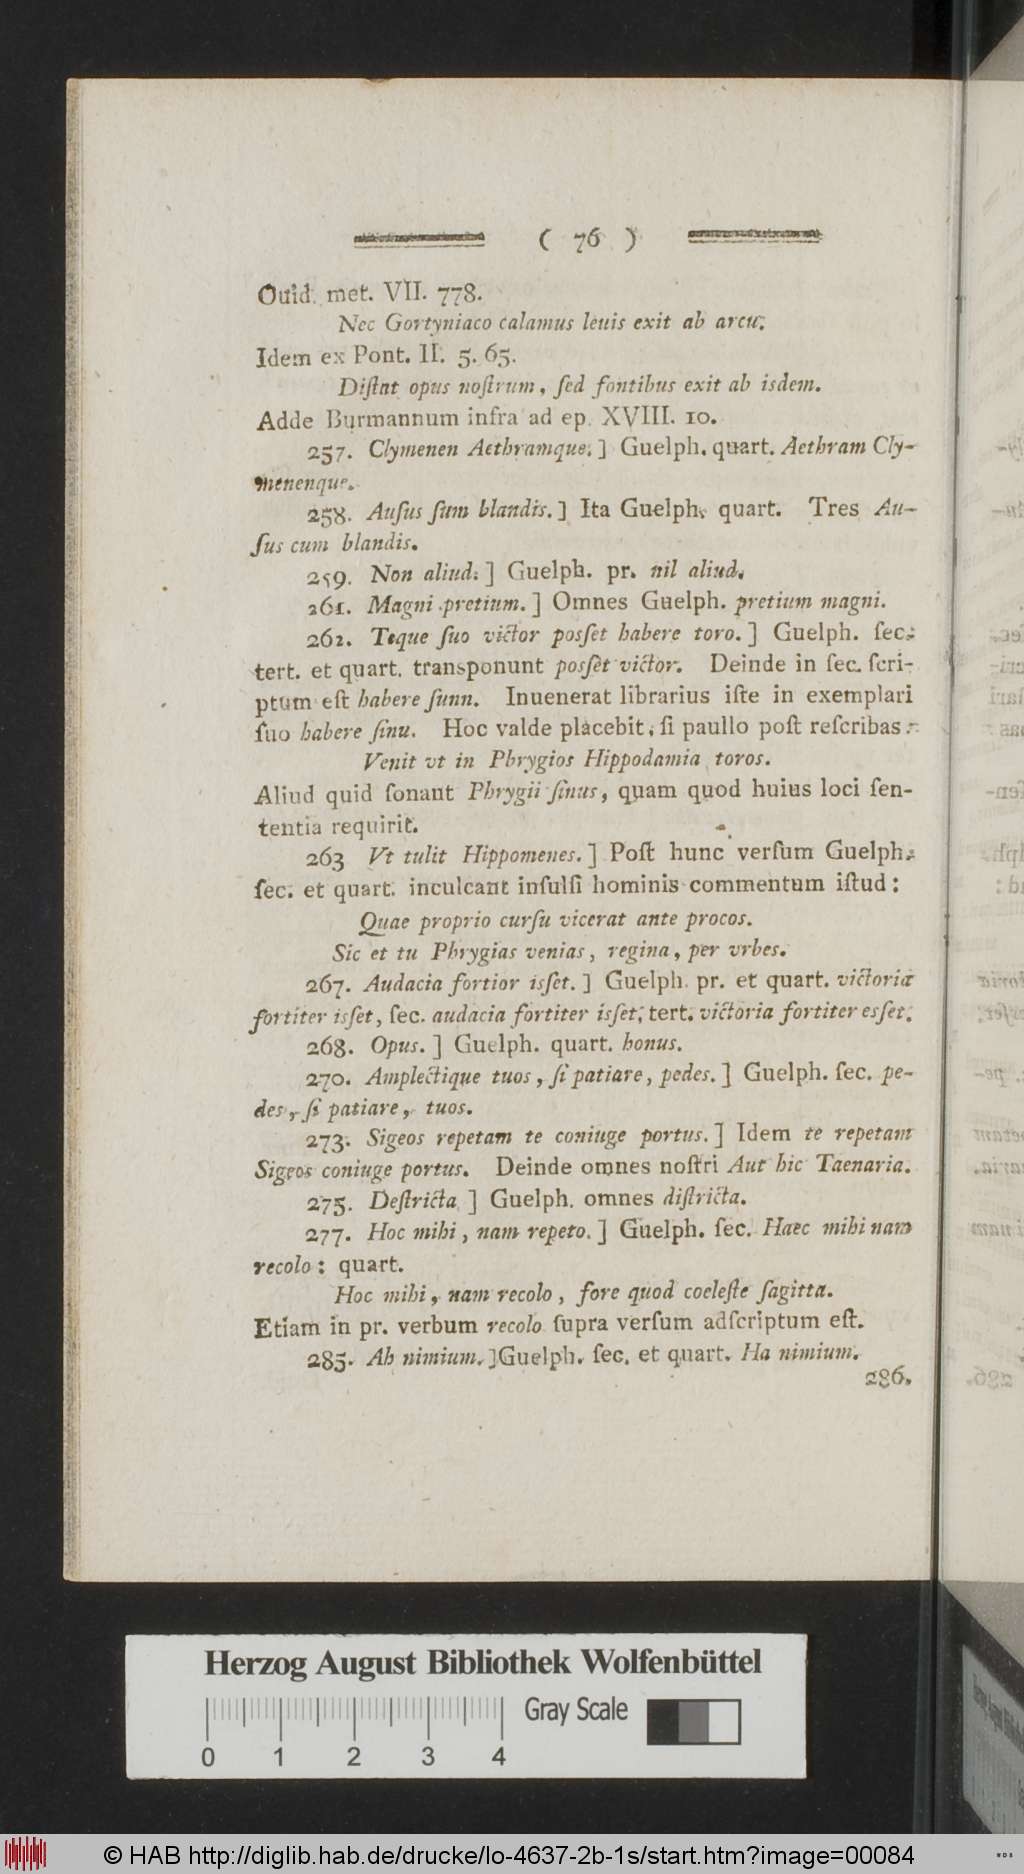 ( 76 )
Ouid. met. VII. 778.
Nec Gortyniaco calamus leuis exit ab arcu.
Idem ex Pont. II. 5. 65.
Diſtat opus noſtrum, ſed fontibus exit ab isdem.
Adde Burmannum infra ad ep. XVIII. 10.
257. Clymenen Aethramque.] Guelph. quart. Aethram Cly-
menenque.
258. Auſus ſum blandis.] Ita Guelph. quart. Tres Au-
ſus cum blandis.
259. Non aliud.] Guelph. pr. nil aliud.
261. Magni pretium.] Omnes Guelph. pretium magni.
262. Teque ſuo victor posſet habere toro.] Guelph. ſec.
tert. et quart. transponunt posſet victor. Deinde in ſec. ſcri-
ptum eſt habere ſunn. Inuenerat librarius iſte in exemplari
ſuo habere ſinu. Hoc valde placebit, ſi paullo poſt reſcribas:
Venit vt in Phrygios Hippodamia toros.
Aliud quid ſonant Phrygii ſinus, quam quod huius loci ſen-
tentia requirit.
263 Vt tulit Hippomenes.] Poſt hunc verſum Guelph.
ſec. et quart. inculcant inſulſi hominis commentum iſtud:
Quae proprio curſu vicerat ante procos.
Sic et tu Phrygias venias, regina, per vrbes.
267. Audacia fortior isſet.] Guelph. pr. et quart. victoria
fortiter isſet, ſec. audacia fortiter isſet, tert. victoria fortiter esſet.
268. Opus.] Guelph. quart. honus.
270. Amplectique tuos, ſi patiare, pedes.] Guelph. ſec. pe-
des, ſi patiare, tuos.
273. Sigeos repetam te coniuge portus.] Idem te repetam
Sigeos coniuge portus. Deinde omnes noſtri Aut hic Taenaria.
275. Deſtricta.] Guelph. omnes diſtricta.
277. Hoc mihi, nam repeto.] Guelph. ſec. Haec mihi nam
recolo: quart.
Hoc mihi, nam recolo, fore quod coeleſte ſagitta.
Etiam in pr. verbum recolo ſupra verſum adſcriptum eſt.
285. Ah nimium.] Guelph. ſec. et quart. Ha nimium.
286.
Herzog August Bibliothek Wolfenbüttel
Gray Scale
0 1 2 3 4
© HAB http://diglib.hab.de/drucke/lo-4637-2b-1s/start.htm?image=00084